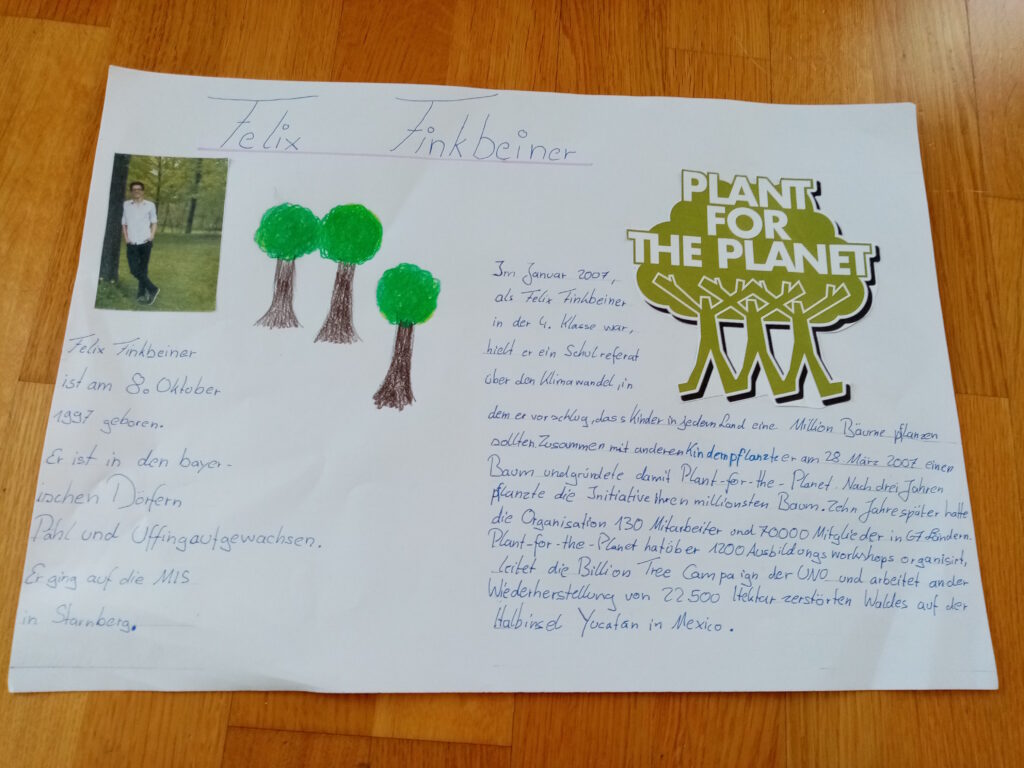 Felix Finkbeiner
PLANT
FOR
THE PLANET
Felix Finkbeiner
ist am 8. Oktober
1997 geboren.
Er ist in den bayer-
ischen Dörfern
Pähl und Uffing aufgewachsen.
Er ging auf die MIS
in Starnberg.
Im Januar 2007,
als Felix Finkbeiner
in der 4. Klasse war,
hielt er ein Schulreferat
über den Klimawandel, in
dem er vorschlug, dass Kinder in jedem Land eine Million Bäume pflanzen
sollten Zusammen mit anderen Kindern pflanzte er am 28 März 2007 einen
Baum und gründete damit Plant-for-the-Planet. Nach drei Jahren
pflanzte die Initiative ihren millionsten Baum. Zehn Jahre später hatte
die Organisation 130 Mitarbeiter und 70000 Mitglieder in 67 Ländern.
Plant-for-the-Planet hat über 1200 Ausbildungsworkshops organisirt,
leitet die Billion Tree Campaign der UNO und arbeitet an der
Wiederherstellung von 22500 Hektar zerstörten Waldes auf der
Halbinsel Yucatán in Mexico.